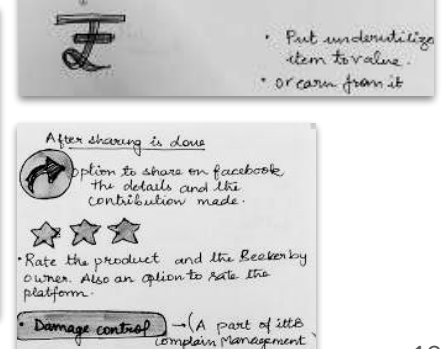 • Put underutilize
item to value.
• or earn from it
After sharing is done
option to share on facebook
the details and the
contribution made.
• Rate the product and the Seeker by
owner. Also an option to rate the
platform.
• Damage control → (A part of ittB
complain Management